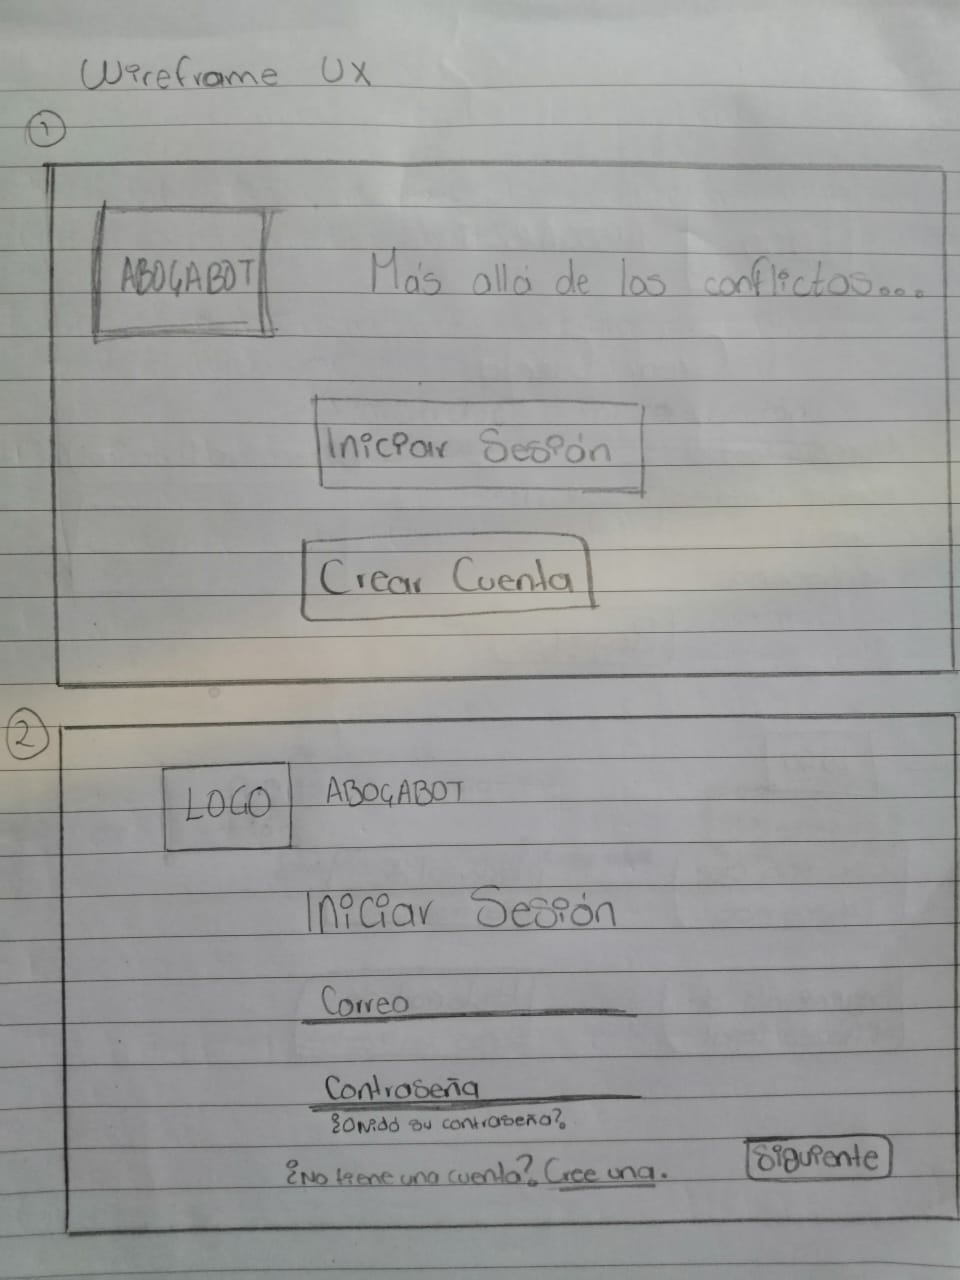 Wireframe UX
1
ABOGABOT
Más allá de los conflictos...
Iniciar Sesión
Crear Cuenta
2
LOGO
ABOGABOT
Iniciar Sesión
Correo
Contraseña
¿Olvidó su contraseña?
¿No tiene una cuenta? Cree una.
Siguiente